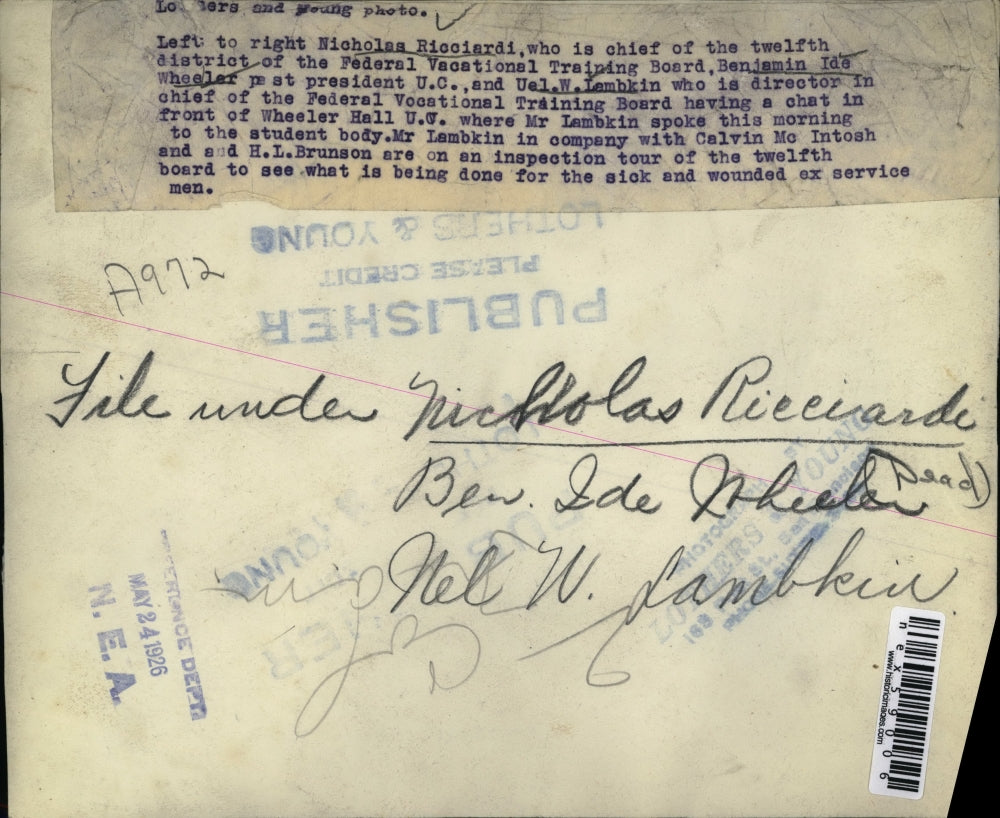 Lothers and young photo.
Left to right Nicholas Ricciardi,who is chief of the twelfth
district of the Federal Vacational Training Board,Benjamin Ide
Wheeler past president U.C.,and Uel.W.Lambkin who is director in
chief of the Federal Vocational Training Board having a chat in
front of Wheeler Hall U.C. where Mr Lambkin spoke this morning
to the student body.Mr Lambkin in company with Calvin Mc Intosh
and and H.L.Brunson are on an inspection tour of the twelfth
board to see what is being done for the sick and wounded ex service
men.
LOTHERS & YOUNG
PLEASE CREDIT
PUBLISHER
A972
File under Nicholas Ricciardi
Ben. Ide Wheeler (Dead)
Nel W. Lambkin
DEPT.
MAY 24 1926
N. E. A.
LOTHERS & YOUNG
nex59006
www.historicimages.com